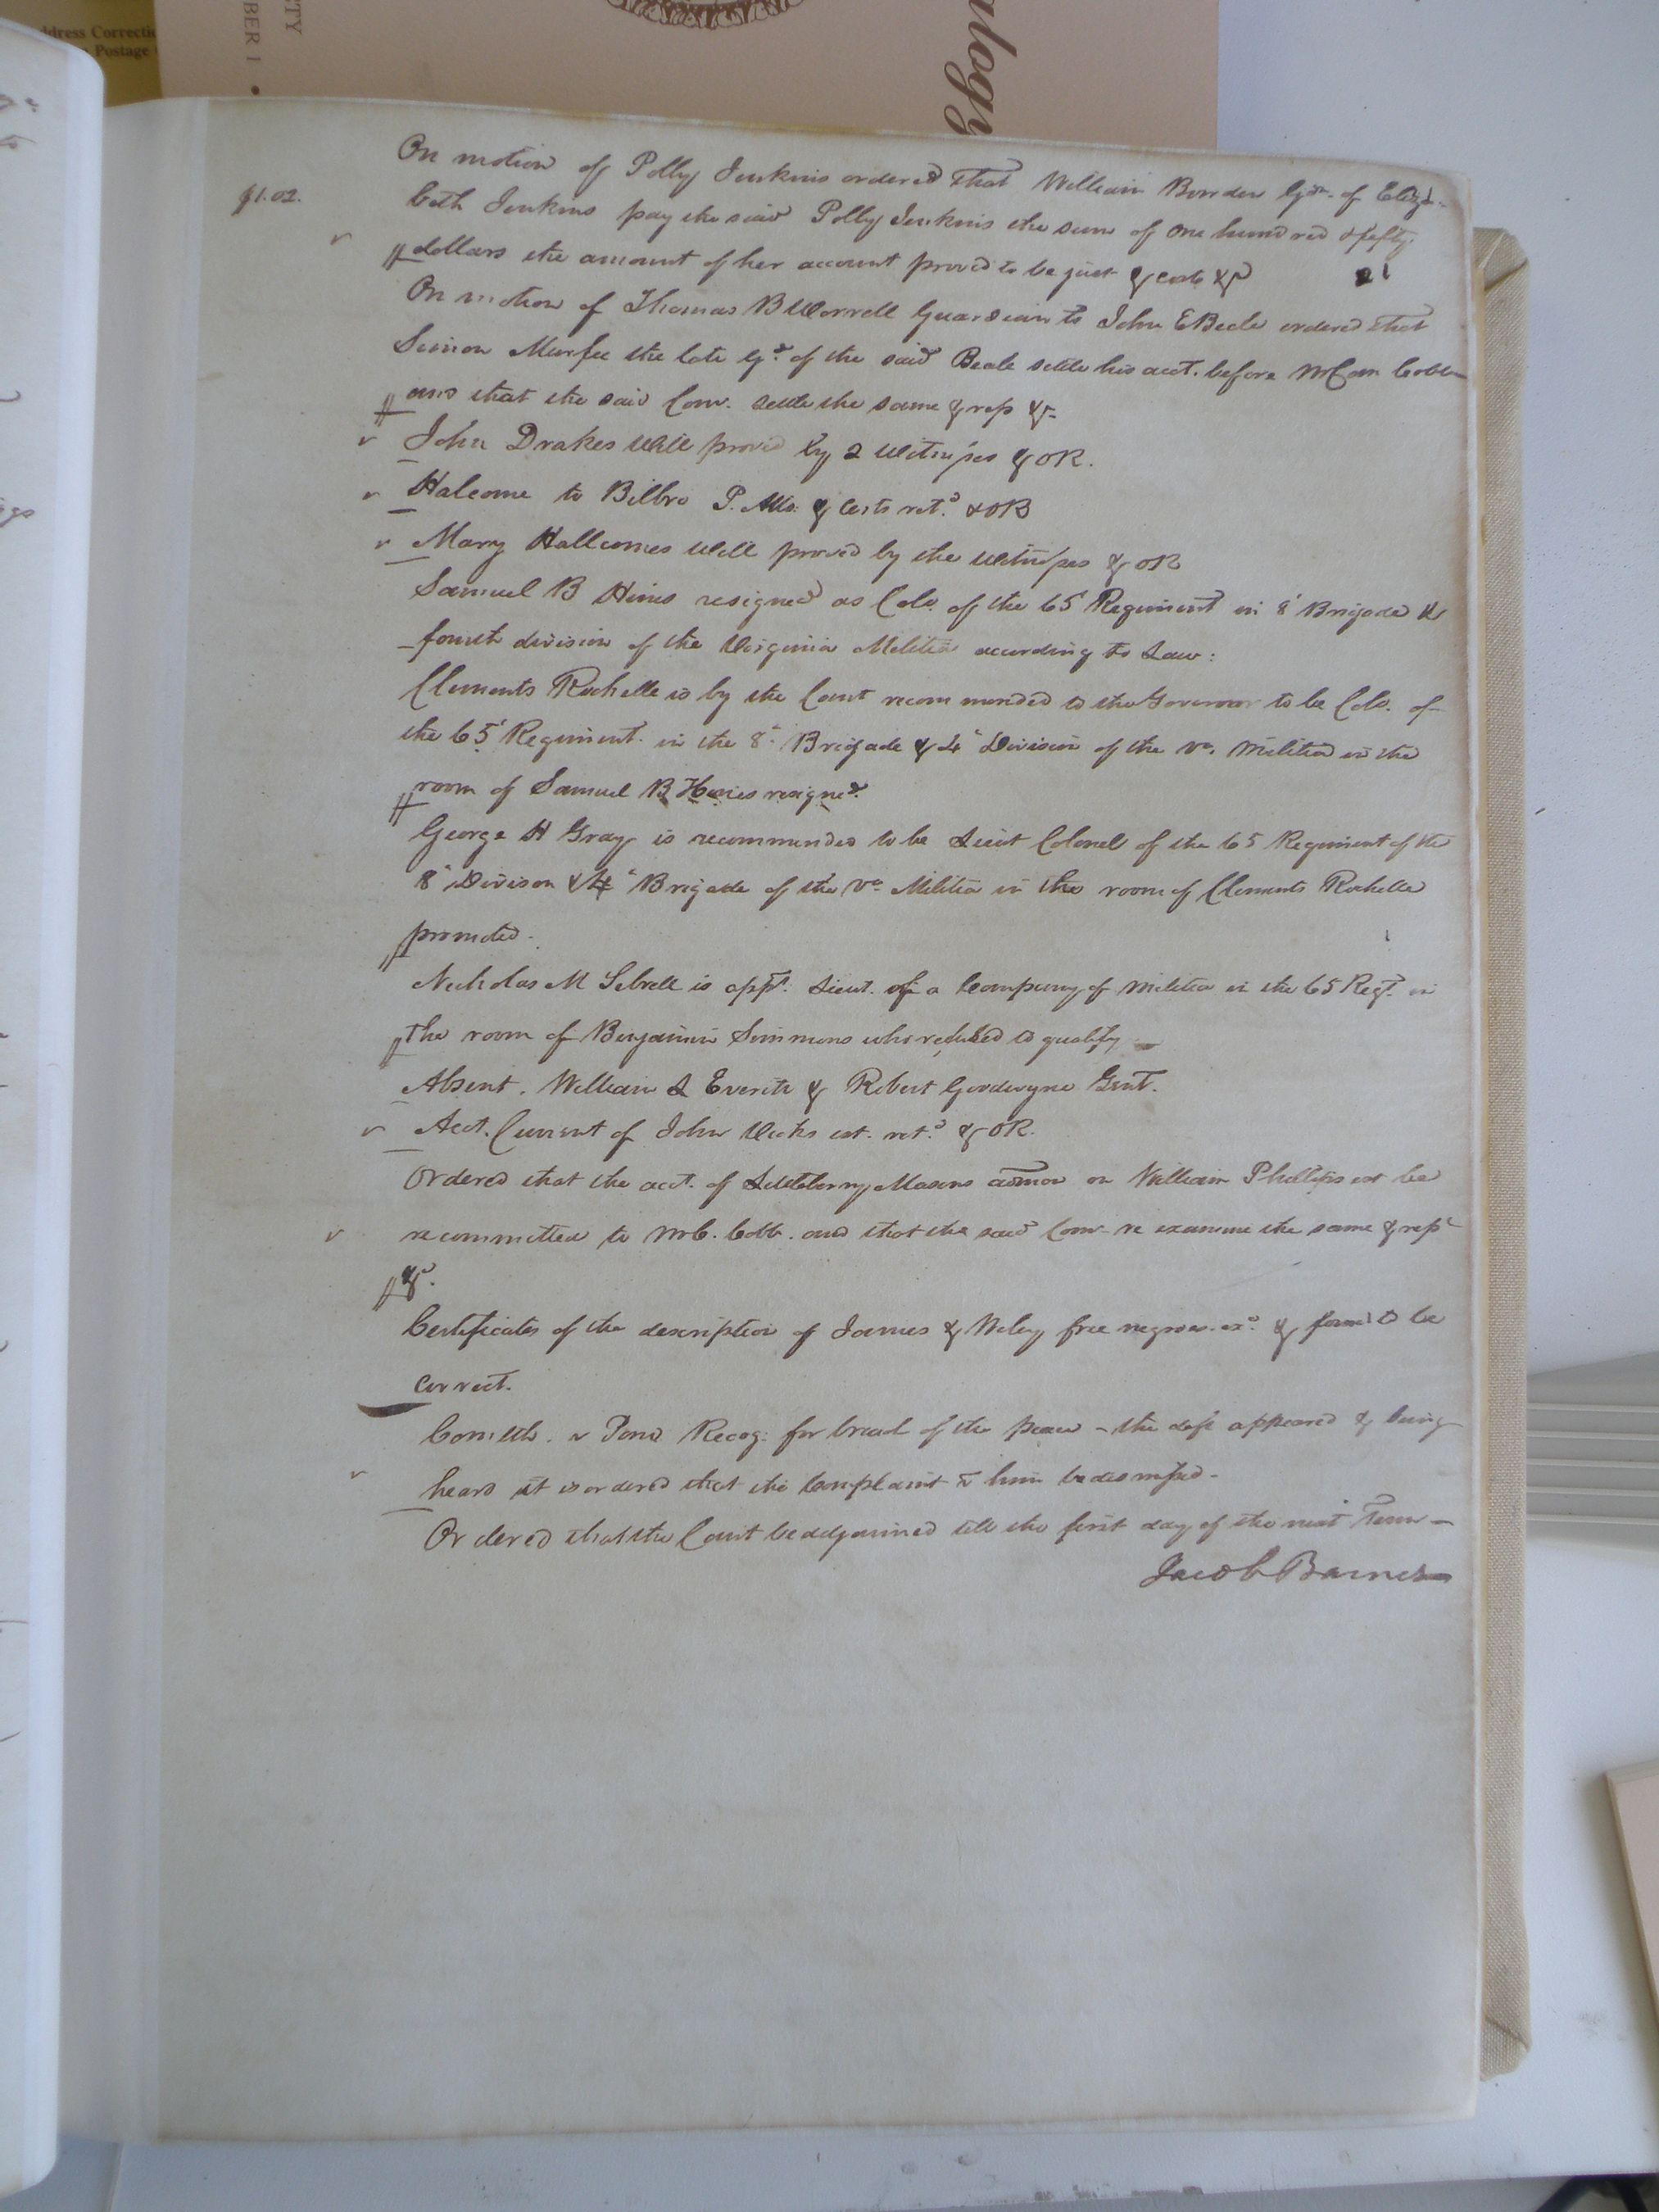 ddress Correctio
Postage
CTY
BER 1 •
alogy
On motion of Polly Jenkins ordered that William Bowden Gdn. of Eliza-
$1.02.
beth Jenkins pay the said Polly Jenkins the sum of one hundred & fifty
dollars the amount of her account proved to be just & costs &c
On motion of Thomas B Worrell Guardian to John E Beale ordered that
Simon Murfee the late Gd. of the said Beale settle his acct. before Cobb
and that the said Com. settle the same & rep &c
John Drakes Will proved by 2 Witnesses & OR.
Halcome to Bilbro P. Atto. & Certs retd. & OR
Mary Hallcomes Will proved by the Witnesses & OR
Samuel B Hines resigned as Colo. of the 65 Regiment in 8 Brigade &
fourth division of the Virginia Militia according to Law:
Clements Rochelle is by the Court recommended to the Governor to be Colo. of
the 65 Regiment in the 8th Brigade & 4th Division of the Va. Militia in the
room of Samuel B Hines resigned.
George H Gray is recommended to be Lieut Colonel of the 65 Regiment of the
8th Divison & 4th Brigade of the Va. Militia in the room of Clements Rochelle
promoted.
Nicholas M Sebrell is appd. Lieut. of a Company of Militia in the 65 Regt. in
the room of Benjamin Simmons who refused to qualify
Absent. William & Robert Goodwyne Gent.
Acct. Current of John Vicks est. retd. & OR.
Ordered that the acct. of Littleberry Masons admor on William Phillips est be
recommitted to Cobb. and that the said Com re examine the same & rept
&c.
Certificates of the description of James & Wiley free negroes exd. & found to be
correct.
Comlth. v Pond Recog: for breach of the peace - the deft appeared & being
heard it is ordered that the Complaint vs him be dismissed -
Ordered that the Court be adjourned till the first day of the next Term -
Jacob Barnes